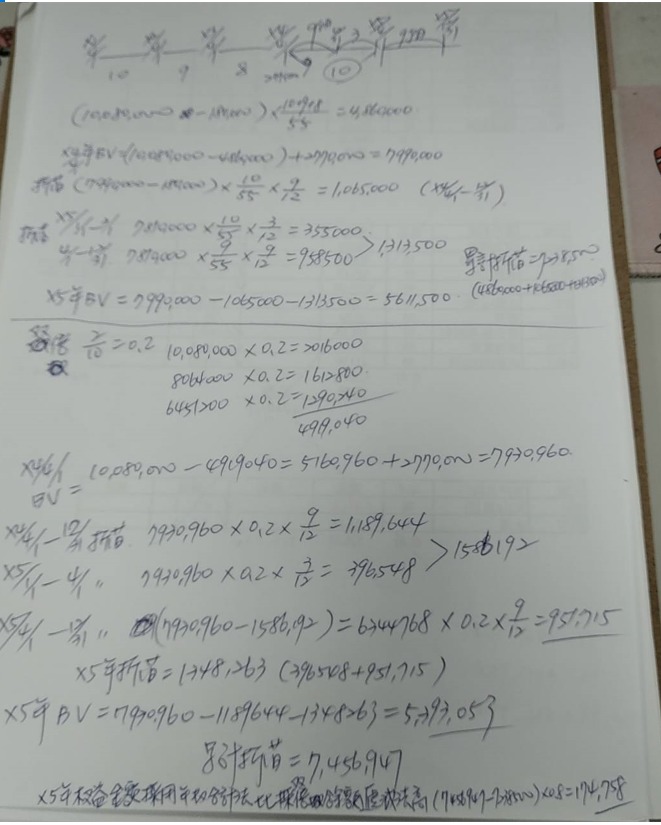 10 9 8 10 3
(10,080,000 - 180,000) × 10+9+8/55 = 4,860,000
X4年BV = (10,080,000 - 4860,000) + 2770,000 = 7990,000
折舊 (7990,000 - 180,000) × 10/55 × 9/12 = 1,065,000 (X4/4/1 - 12/31)
折舊 X5/1/1 - 4/1 7810,000 × 10/55 × 3/12 = 355000
4/1 - 12/31 7810,000 × 9/55 × 9/12 = 958500 > 1,313,500
累計折舊 = 7,238,500
(4860,000 + 1065,000 + 1313,500)
X5年BV = 7990,000 - 1065000 - 1313500 = 5611,500
2/10 = 0.2 10,080,000 × 0.2 = 2016000
8064000 × 0.2 = 1612800
6451200 × 0.2 = 1290,240
4919,040
X4/4/1 BV = 10,080,000 - 4919040 = 5160,960 + 2770,000 = 7930,960
X4/4/1 - 12/31 折舊 7930,960 × 0.2 × 9/12 = 1,189,644
X5/1/1 - 4/1 〃 7930,960 × 0.2 × 3/12 = 396,548 > 1586,192
X5/4/1 - 12/31 〃 (7930,960 - 1586,192) = 6344768 × 0.2 × 9/12 = 951,715
X5年折舊 = 1348,263 (396548 + 951,715)
X5年BV = 7930,960 - 1189644 - 1348263 = 5,393,053
累計折舊 = 7,456,947
X5年 採用年數合計法比 法高 (7456947 - 7238500) × 0.8 = 174,758